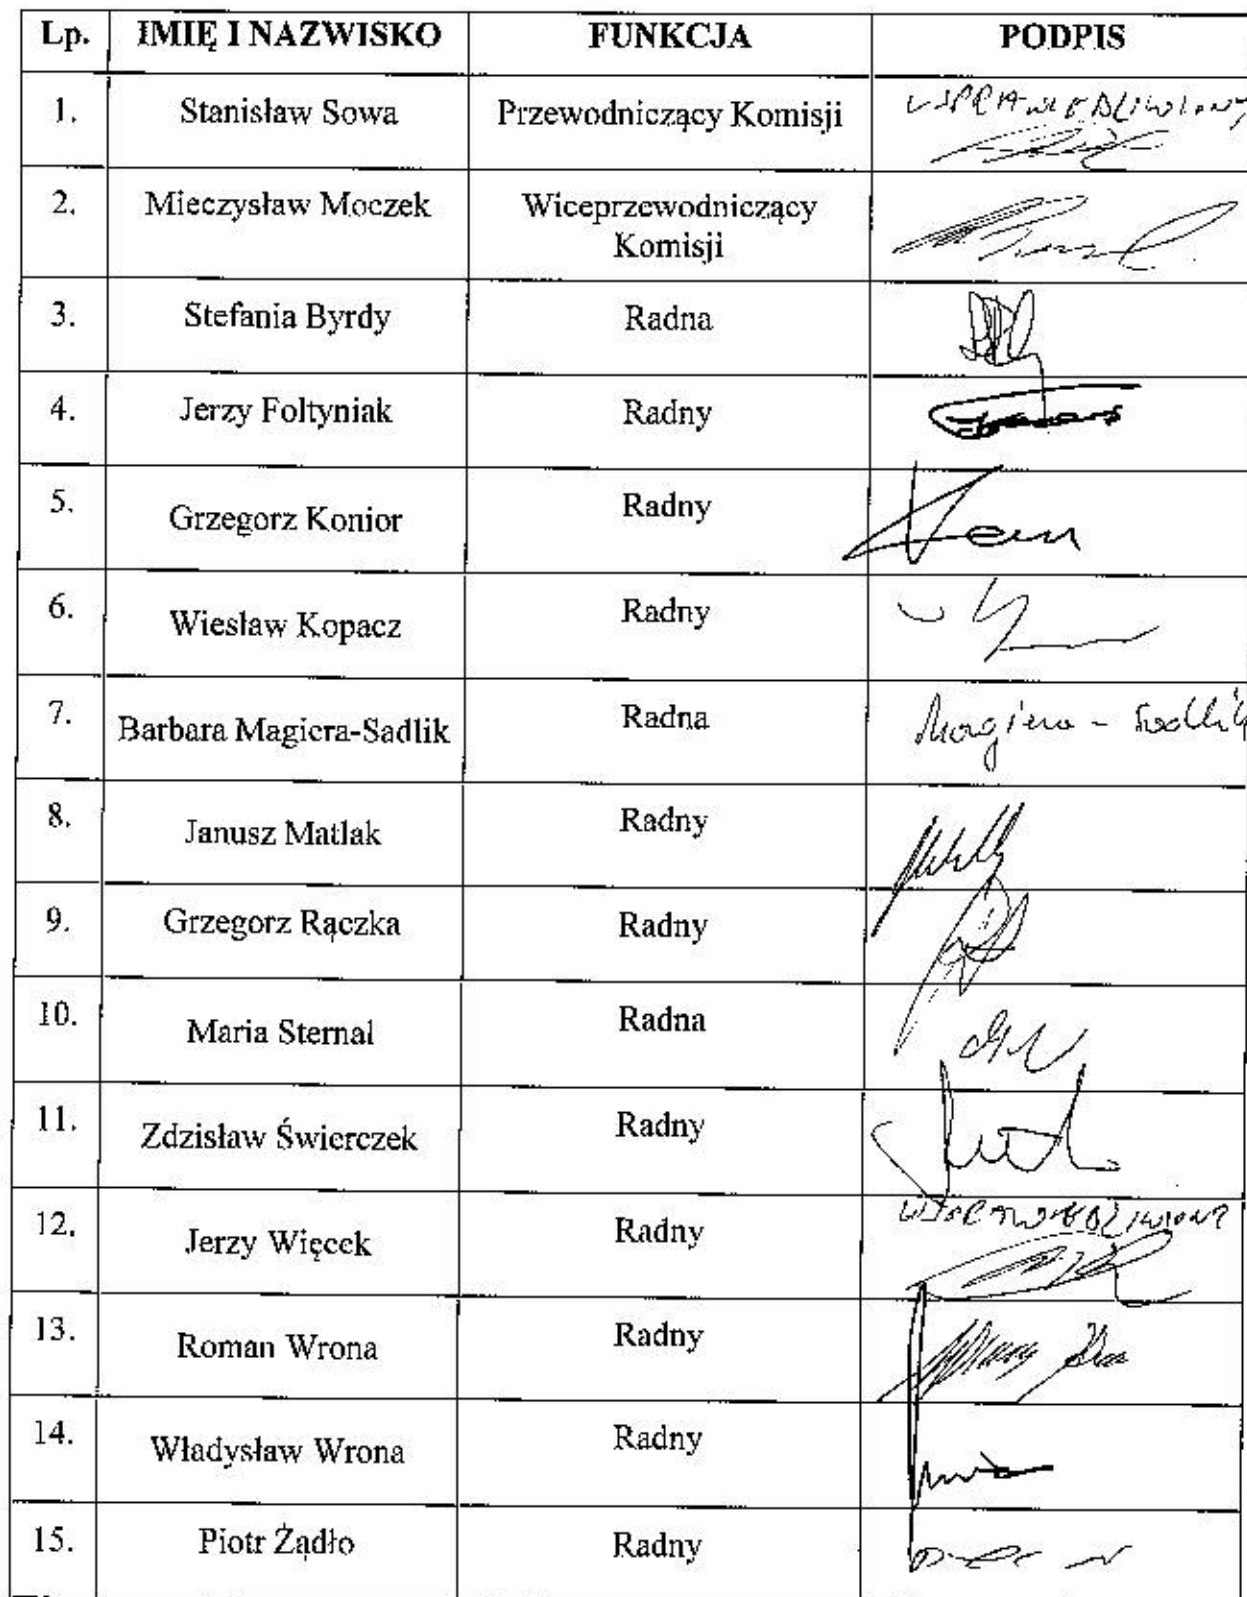 Lp. IMIĘ I NAZWISKO FUNKCJA PODPIS
1. Stanisław Sowa Przewodniczący Komisji
2. Mieczysław Moczek Wiceprzewodniczący
Komisji
3. Stefania Byrdy Radna
4. Jerzy Foltyniak Radny
5. Grzegorz Konior Radny
6. Wiesław Kopacz Radny
7. Barbara Magiera-Sadlik Radna Magiera - Sadlik
8. Janusz Matlak Radny
9. Grzegorz Rączka Radny
10. Maria Sternal Radna
11. Zdzisław Świerczek Radny
12. Jerzy Więcek Radny
13. Roman Wrona Radny
14. Władysław Wrona Radny
15. Piotr Żądło Radny